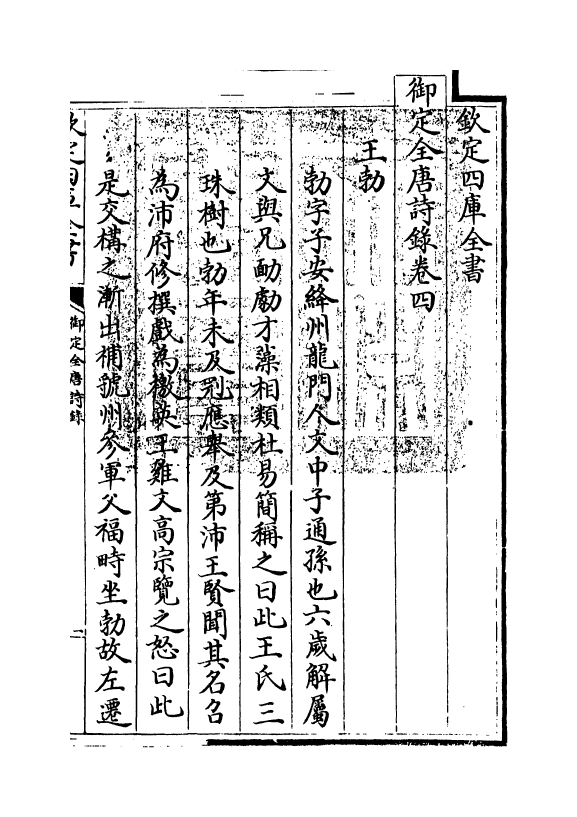 欽定四庫全書
御定全唐詩錄卷四
王勃
勃字子安絳州龍門人文中子通孫也六歲解屬
文與兄勔勮才藻相類杜易簡稱之曰此王氏三
珠樹也勃年未及冠應舉及第沛王賢聞其名召
為沛府修撰戲為檄英王雞文高宗覽之怒曰此
是交構之漸出補虢州參軍父福畤坐勃故左遷
欽定四庫全書
御定全唐詩錄